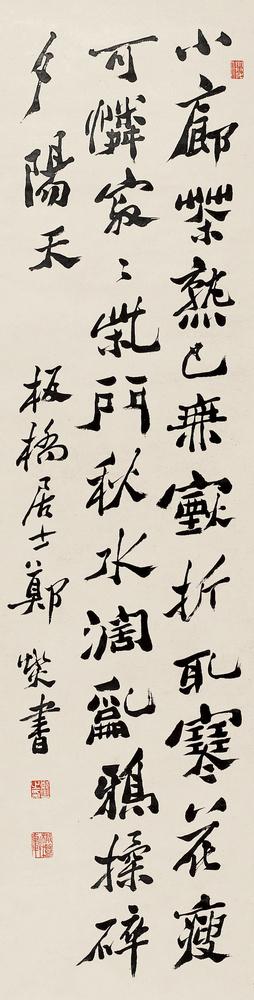 小廊茶熟已無煙折取寒花瘦
可憐寂〻柴門秋水闊亂鴉揉碎
夕陽天
板橋居士鄭燮書